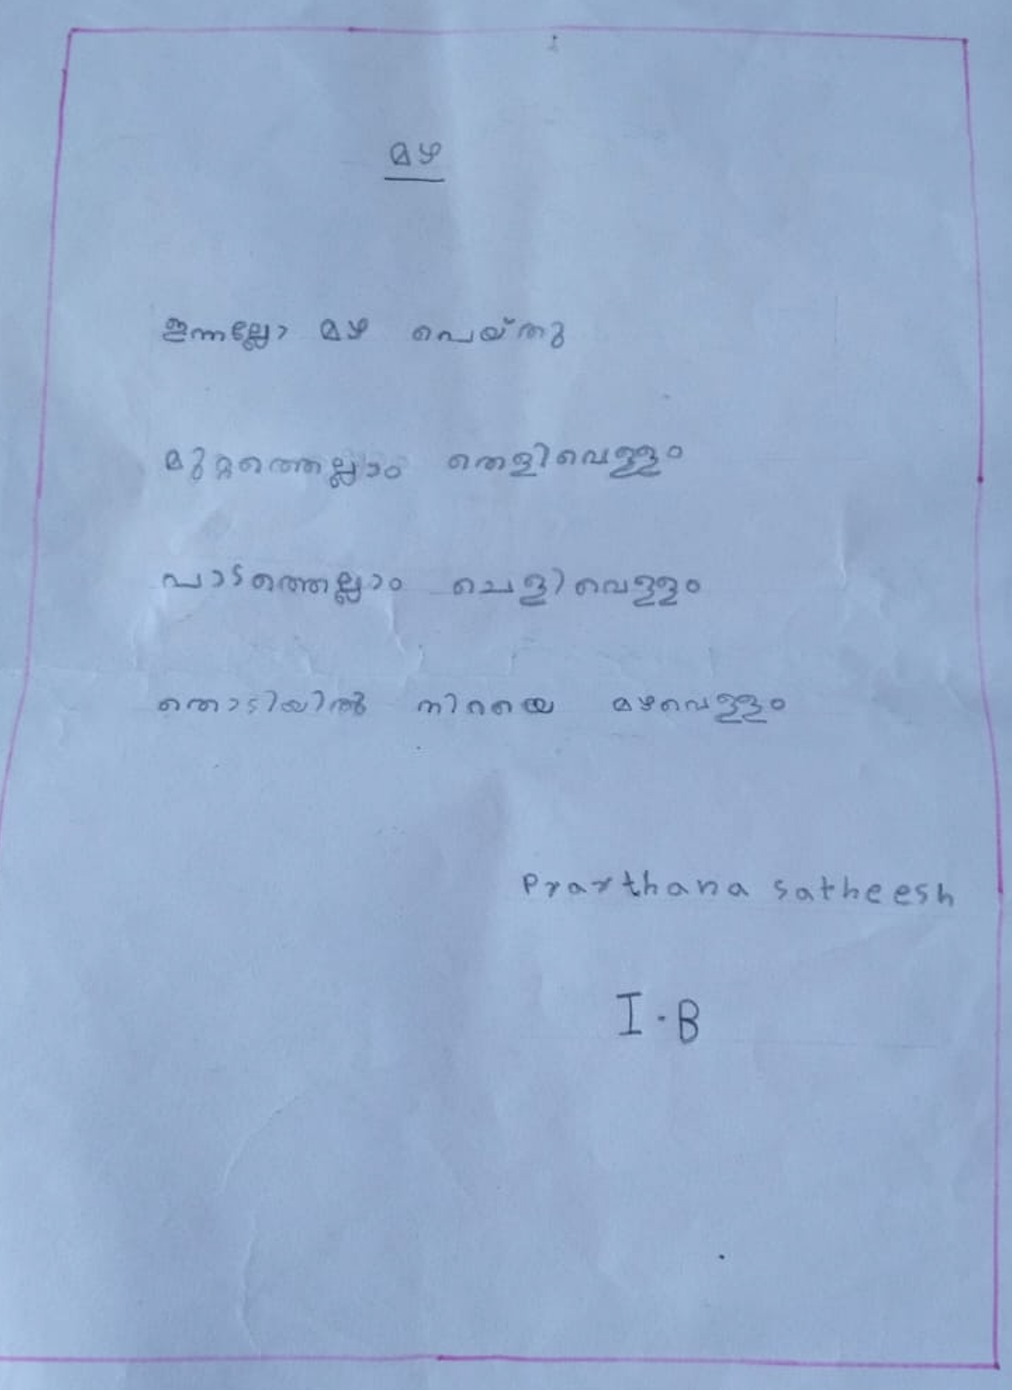 മഴ
ഇന്നല്ലോ മഴ പെയ്തു
മുറ്റത്തെല്ലാം തെളിവെള്ളം
പാടത്തെല്ലാം ചെളിവെള്ളം
തൊടിയിൽ നിറയെ മഴവെള്ളം
Prarthana satheesh
I.B